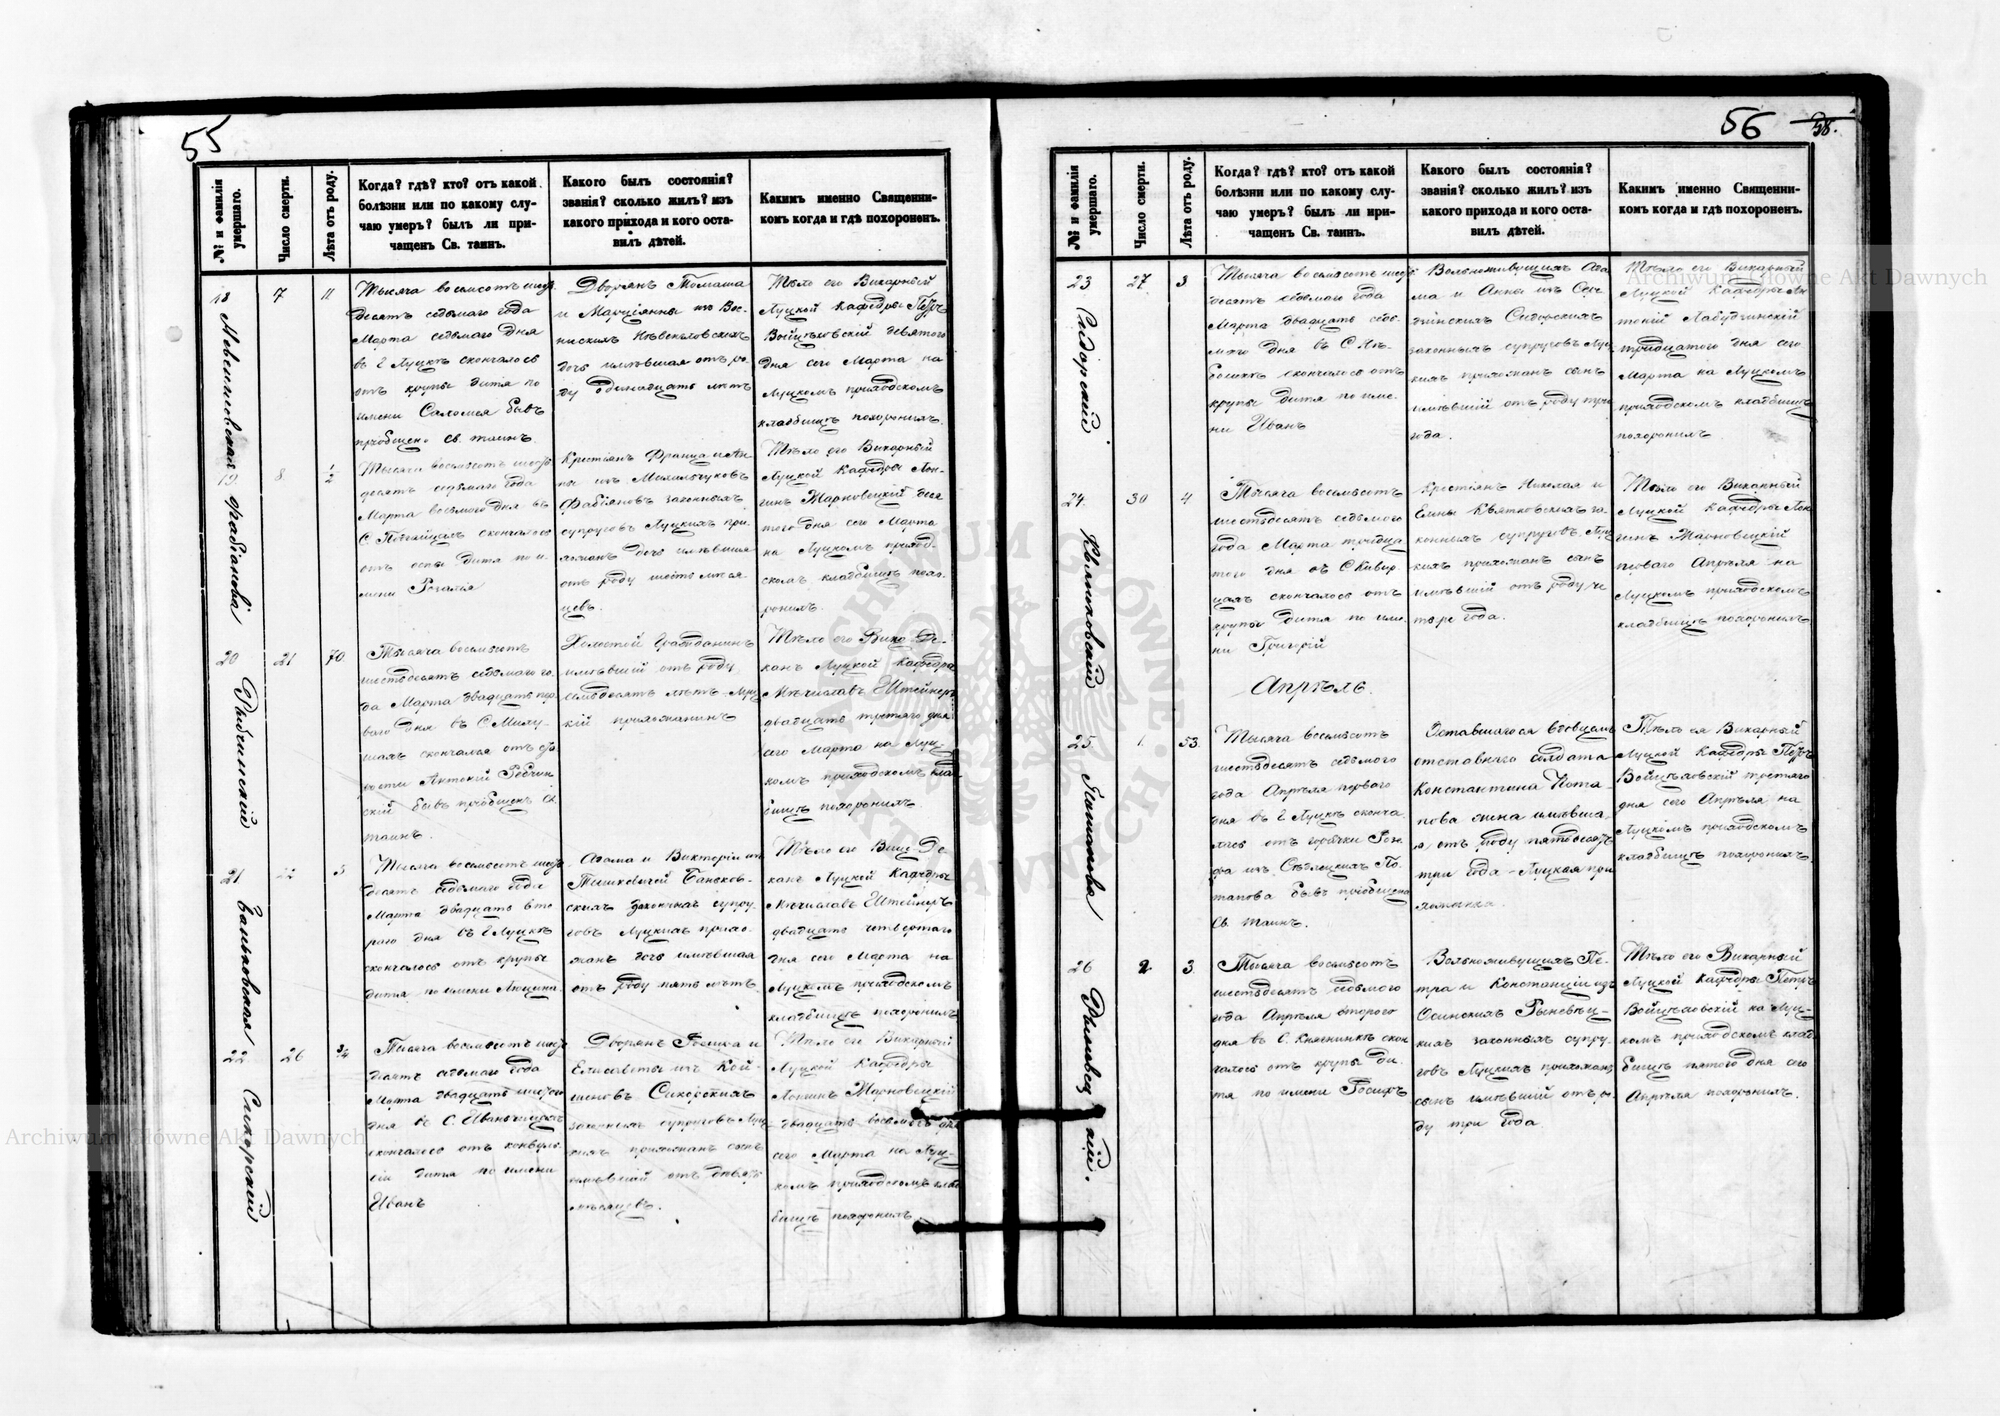 55
№ и фамилія умершаго.
Число смерти.
Лѣта отъ роду.
Когда? гдѣ? кто? отъ какой
болѣзни или по какому слу-
чаю умеръ? былъ ли при-
чащенъ Св. таинъ.
Какого былъ состоянія?
званія? сколько жилъ? изъ
какого прихода и кого оста-
вилъ дѣтей.
Какимъ именно Священни-
комъ когда и гдѣ похороненъ.
18
7
11
Тысяча восемсотъ шест
десятъ седьмаго года
Марта седьмаго дня
въ г Луцкѣ скончалось
отъ крупы дитя по
имени Саломея бывъ
пріобщено Св. таинъ.
Дворянъ Томаша
и Марціянны изъ
дочь имѣвшая отъ ро-
ду одинадцать лѣтъ
Тѣло его Викарный
Луцкой Кафедры Петръ
Войцѣховскій девятого
дня сего Марта на
Луцкомъ приходскомъ
кладбищѣ похоронилъ.
19
Фабіянова
8
1/2
Тысяча восемсотъ шест
десятъ седьмаго года
Марта восьмого дня въ
скончалось
отъ оспы дитя по и-
мени Розалія
Крестіянъ Франца и Ан-
ны изъ
Фабіяновъ законныхъ
супруговъ Луцкихъ при-
хожанъ дочь имѣвшая
отъ роду шесть мѣся-
цевъ.
Тѣло его Викарный
Луцкой Кафедры Лон-
гинъ Жарновецкій деся
того дня сего Марта
на Луцкомъ приход-
скомъ кладбищѣ похо-
ронилъ.
20
21
70
Тысяча восемсотъ
шестдесятъ седьмаго го-
да Марта двадцать пер-
ваго дня въ С Милу-
шахъ скончался отъ ста
рости Антоній
скій бывъ пріобщенъ Св
таинъ.
Холостой Гражданинъ
имѣвшій отъ роду
семдесятъ лѣтъ Луц-
кій прихожанинъ
Тѣло его Вице-Де-
канъ Луцкой Кафедры
Мѣчиславъ Штейнеръ
двадцать третяго дня
сего Марта на Луц-
комъ приходскомъ клад
бищѣ похоронилъ
21
Баньковская
22
5
Тысяча восемсотъ шест
десятъ седьмаго года
Марта двадцать вто
рого дня въ г Луцкѣ
скончалось отъ крупы
дитя по имени Люцина
Адама и Викторіи изъ
Баньков-
скихъ законныхъ супру-
говъ Луцкихъ прихо-
жанъ дочь имѣвшая
отъ роду пять лѣтъ.
Тѣло его Вице-Де-
канъ Луцкой Кафедры
Мѣчиславъ Штейнеръ
двадцать четвертаго
дня сего Марта на
Луцкомъ приходскомъ
кладбищѣ похоронилъ
22
Сикорскій
26
3/4
Тысяча восемсотъ шест
десятъ седьмаго года
Марта двадцать шестого
дня въ С.
скончалось отъ конвуль-
сіи дитя по имени
Иванъ
Дворянъ Іосифа и
Елисаветы изъ Кой-
шевъ Сикорскихъ
законныхъ супруговъ Луц
кихъ прихожанъ сынъ
имѣвшій отъ девять
мѣсяцевъ.
Тѣло его Викарный
Луцкой Кафедры
Лонгинъ Жарновецкій
двадцать восьмого дня
сего Марта на Луц-
комъ приходскомъ клад
бищѣ похоронилъ.
56
58.
№ и фамилія умершаго.
Число смерти.
Лѣта отъ роду.
Когда? гдѣ? кто? отъ какой
болѣзни или по какому слу-
чаю умеръ? былъ ли при-
чащенъ Св. таинъ.
Какого былъ состоянія?
званія? сколько жилъ? изъ
какого прихода и кого оста-
вилъ дѣтей.
Какимъ именно Священни-
комъ когда и гдѣ похороненъ.
23
Сидорскій
27
3
Тысяча восемсотъ шест
десятъ седьмаго года
Марта двадцать седь-
мого дня въ С
скончалось отъ
крупы дитя по име-
ни Иванъ
Вольноживущихъ Ада
ма и Анны изъ
Сидорскихъ
законныхъ супруговъ Луц
кихъ прихожанъ сынъ
имѣвшій отъ роду три
года.
Тѣло его Викарный
Луцкой Кафедры Ан-
тоній Лабудзинскій
тридцатого дня сего
Марта на Луцкомъ
приходскомъ кладбищѣ
похоронилъ
24
Квятковскій
30
4
Тысяча восемсотъ
шестьдесятъ седьмого
года Марта тридца
того дня въ С Кивер
цахъ скончалось отъ
крупы дитя по име-
ни Григорій
Крестіянъ Николая и
Елены Квятковскихъ за-
конныхъ супруговъ Луц
кихъ прихожанъ сынъ
имѣвшій отъ роду че
тыре года.
Тѣло его Викарный
Луцкой Кафедры Лон
гинъ Жарновецкій
перваго Апрѣля на
Луцкомъ приходскомъ
кладбищѣ похоронилъ
Апрѣль.
25
Потапова
1.
53.
Тысяча восемсотъ
шестьдесятъ седьмого
года Апрѣля перваго
дня въ г Луцкѣ сконча
лась отъ горячки
изъ Сѣдлецкихъ По
тапова бывъ пріобщена
Св. таинъ.
Оставшагося вдовцемъ
отставнаго солдата
Константина Пота
пова жена имѣвша
я отъ роду пятдесятъ
три года Луцкая при
хожанка.
Тѣло ея Викарный
Луцкой Кафедры Петръ
Войцѣховскій третяго
дня сего Апрѣля на
Луцкомъ приходскомъ
кладбищѣ похоронилъ
26
2
3
Тысяча восемсотъ
шестьдесятъ седьмого
года Апрѣля второго
дня въ С. Княгининкѣ скон
чалось отъ крупы ди-
тя по имени Іосифъ
Вольноживущихъ Пе-
тра и Констанціи изъ
Осинскихъ
законныхъ супру-
говъ Луцкихъ прихожанъ
сынъ имѣвшій отъ ро-
ду три года.
Тѣло его Викарный
Луцкой Кафедры Петръ
Войцѣховскій на Луц-
комъ приходскомъ клад
бищѣ пятого дня сего
Апрѣля похоронилъ.
Archiwum Główne Akt Dawnych
Archiwum Główne Akt Dawnych
ARCHIWUM GŁÓWNE AKT DAWNYCH